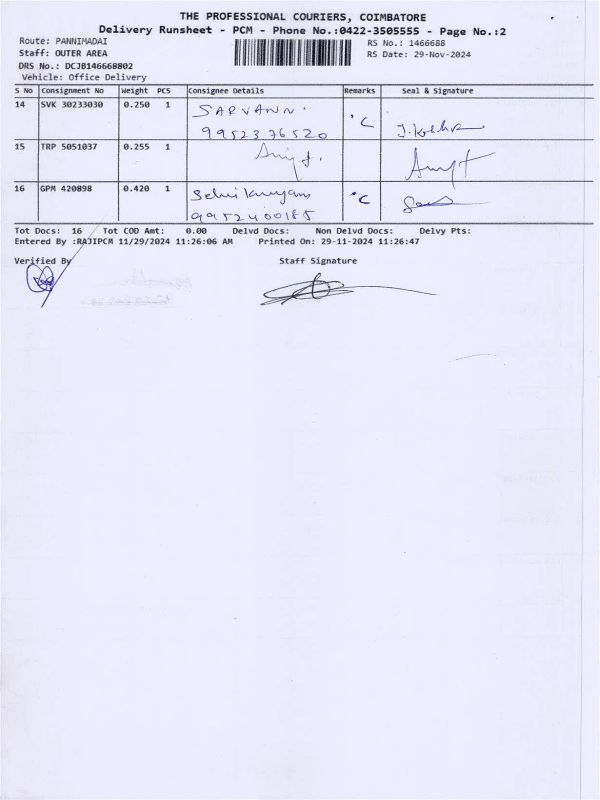 THE PROFESSIONAL COURIERS, COIMBATORE
Delivery Runsheet - PCM - Phone No.:0422-3505555 - Page No.:2
Route: PANNIMADAI
RS No.: 1466688
Staff: OUTER AREA
RS Date: 29-Nov-2024
DRS No.: DCJB146668802
Vehicle: Office Delivery
S No Consignment No Weight PCS Consignee Details Remarks Seal & Signature
14 SVK 30233030 0.250 1 SARVANN.
9952376520 "C
15 TRP 5051037 0.255 1
16 GPM 420898 0.420 1 "C
9952400185
Tot Docs: 16 Tot COD Amt: 0.00 Delvd Docs: Non Delvd Docs: Delvy Pts:
Entered By :RAJIPCM 11/29/2024 11:26:06 AM Printed On: 29-11-2024 11:26:47
Verified By Staff Signature